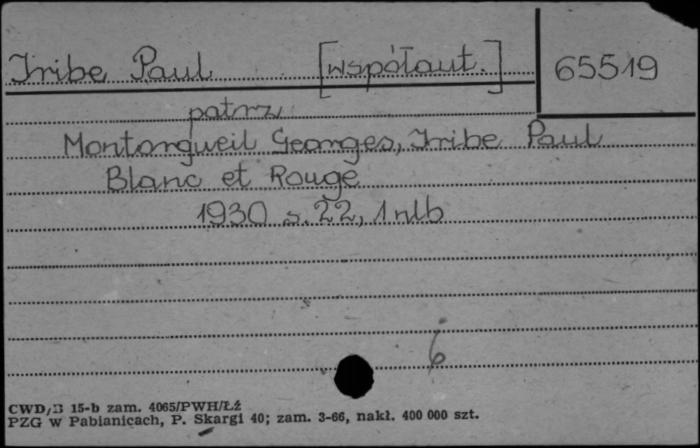 Iribe Paul [współaut.] 65519
patrz
Montorgueil Georges, Iribe Paul
Blanc et Rouge
1930 s. 22, 1 nlb
6
CWD/B 15-b zam. 4065/PWH/Łź
PZG w Pabianicach, P. Skargi 40; zam. 3-66, nakł. 400 000 szt.